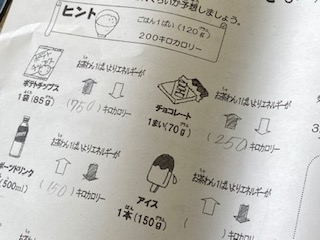 くらいか予想しましょう。
ヒント
ごはん1ぱい(120g)
200キロカロリー
お茶わん1ぱいよりエネルギーが
ポテトチップス
1袋(85g)
キロカロリー
お茶わん1ぱいよりエネルギーが
チョコレート
1まい(70g)
(250)キロカロリー
お茶わん1ぱいよりエネルギーが
ポーツドリンク
500ml)
(150)キロカロリー
お茶わん1ぱいよりエネルギーが
アイス
1本(150g)
キロカロリー